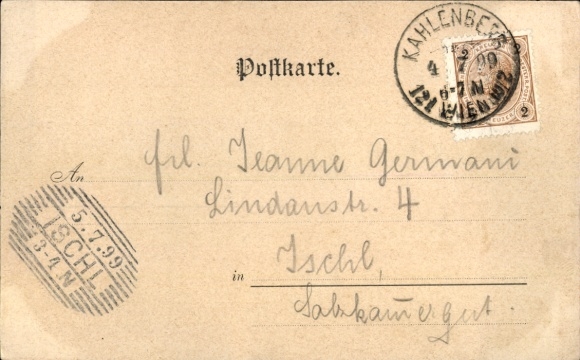 Postkarte.
KAHLENBERG
4 7 99
6-7 N
121 WIEN
2
2
An Frl. Jeanne Germani
Lindaustr. 4
in Ischl,
Salzkam̄ergut.
5.7.99
ISCHL
3-4 N